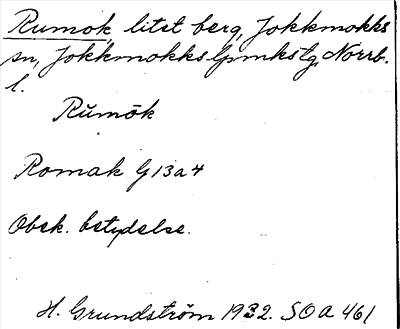 Rumok, litet berg, Jokkmokks
sn, Jokkmokks lpmkstg, Norrb.
l.
Rŭmōk
Romak G 13 a 4
Obek. betydelse.
H. Grundström 1932. SOA 461